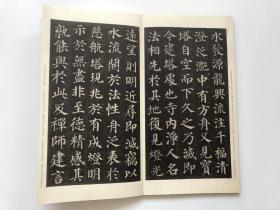 水發源龍興流注千福清
澄泛灧中有方舟又見寶
塔自空而下久之乃滅即
今建塔處也寺內淨人名
法相先於其地復見燈光
遠望則明近尋即滅竊以
水流開於法性舟泛表於
慈航塔現兆於有成燈明
示於無盡非至德精感其
孰能與於此及禪師建言